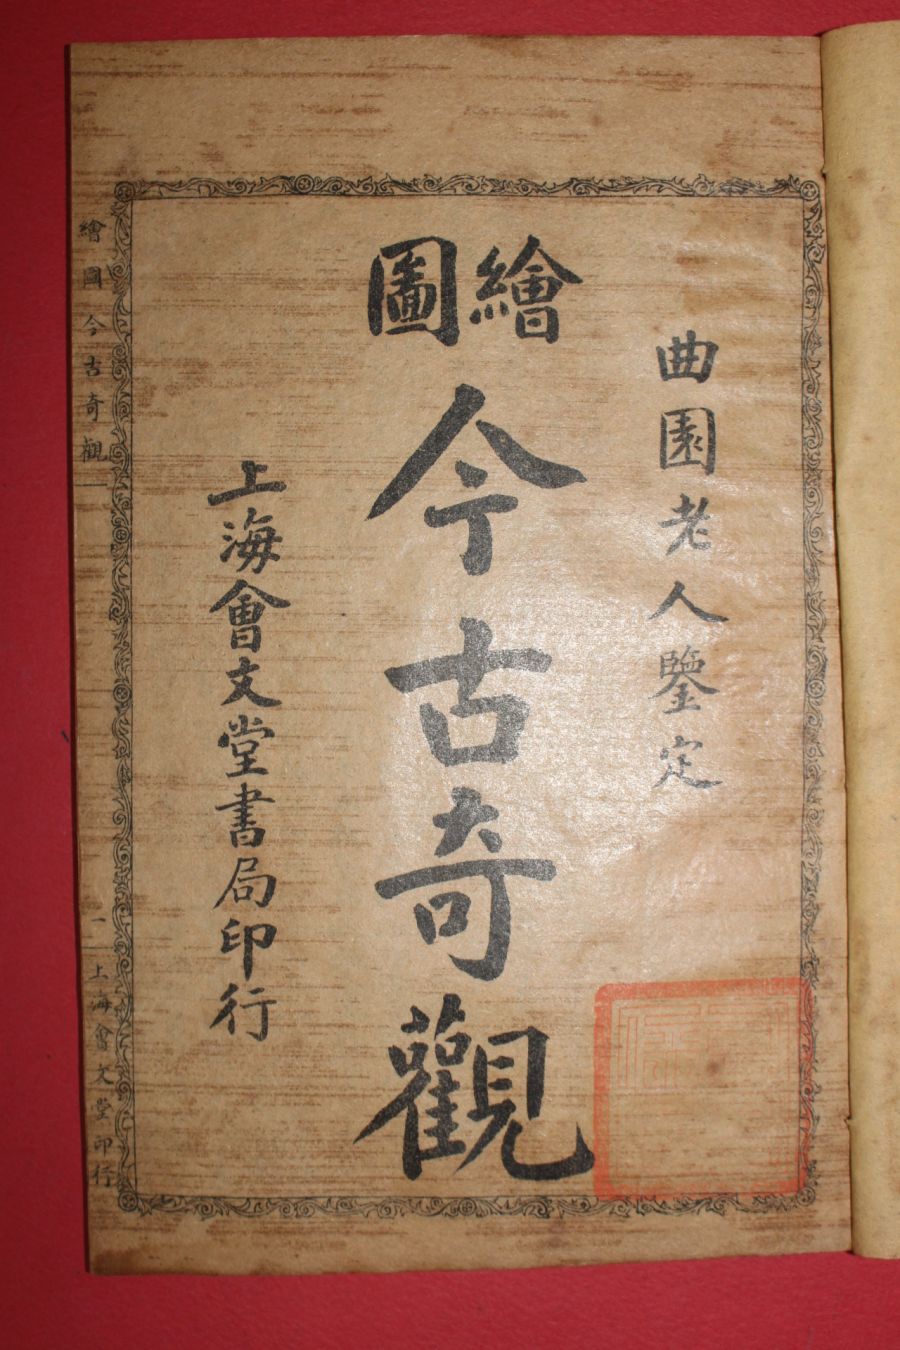 曲園老人鑒定
繪圖
今古奇觀
上海會文堂書局印行
繪圖今古奇觀
一
上海會文堂印行